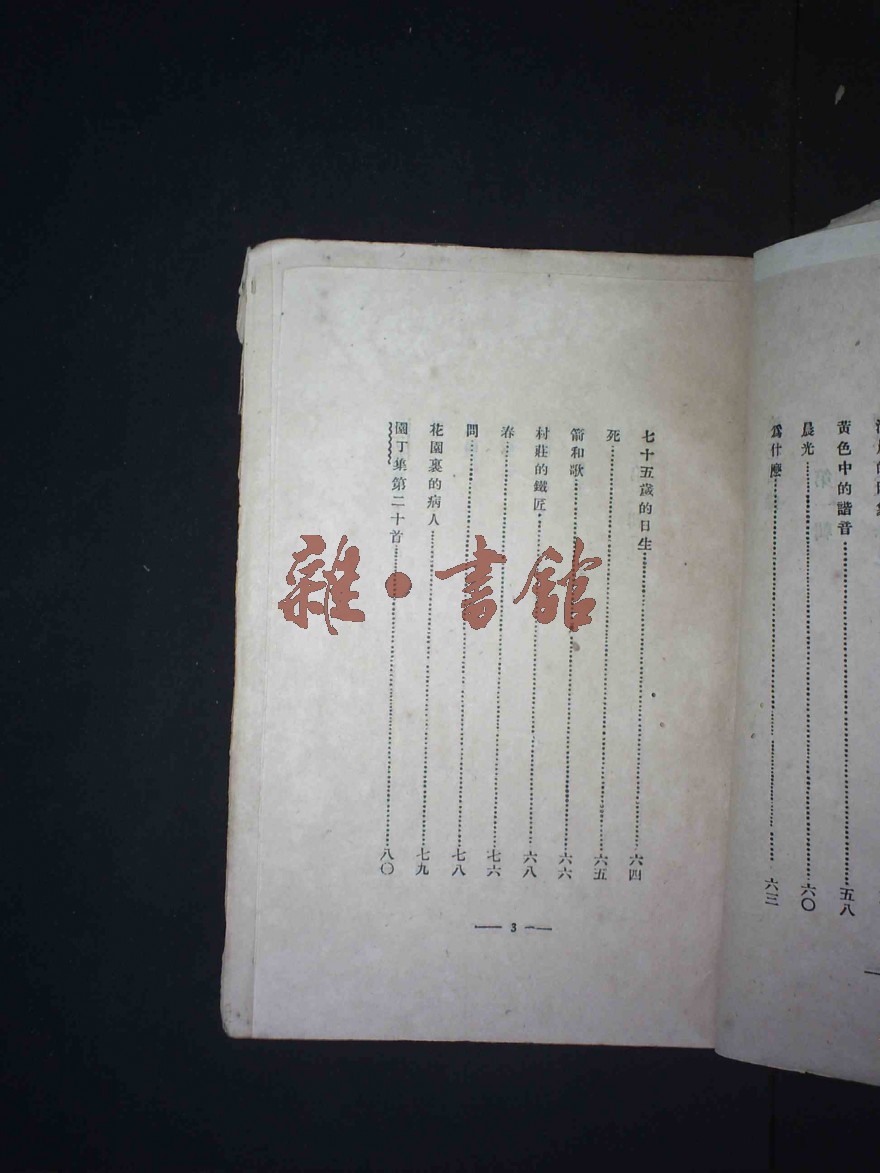 黃色中的諧音……五八
晨光……六〇
爲什麼……六三
七十五歲的日生……六四
死……六五
箭和歌……六六
村莊的鐵匠……六八
春……七六
問……七八
花園裏的病人……七九
園丁集第二十首……八〇
— 3 —
雜·書館